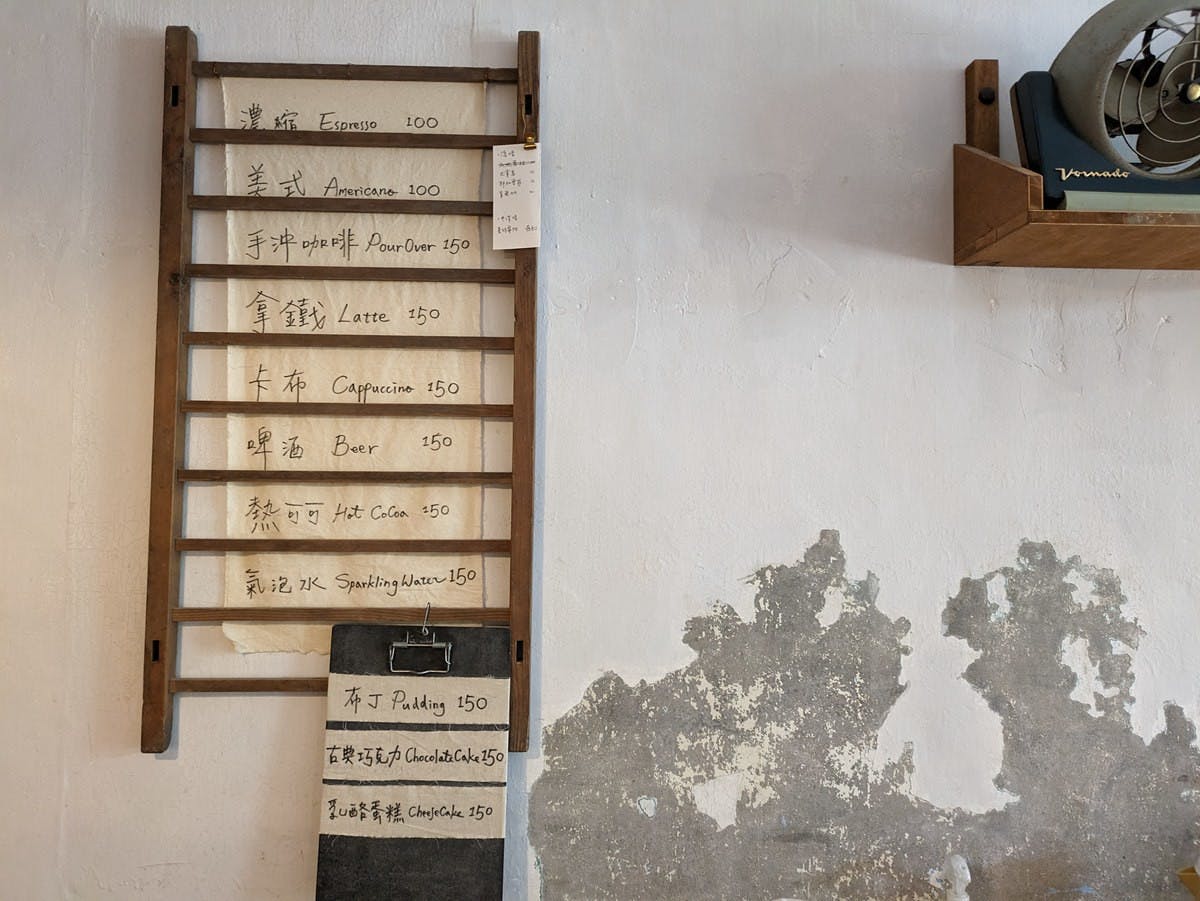 濃縮 Espresso 100
美式 Americano 100
手沖咖啡 PourOver 150
拿鐵 Latte 150
卡布 Cappuccino 150
啤酒 Beer 150
熱可可 Hot CoCoa 150
氣泡水 Sparkling Water 150
布丁 Pudding 150
古典巧克力 ChocolateCake 150
乳酪蛋糕 CheeseCake 150
Vornado